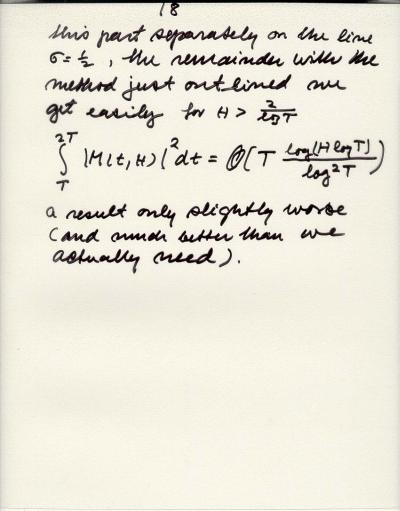 18
this part separately on the line
σ=½, the remainder with the
method just outlined we
get easily for H > 2/log T
∫_T^{2T} |M(t,H)|² dt = O(T log(H log T)/log² T)
a result only slightly worse
(and much better than we
actually need).